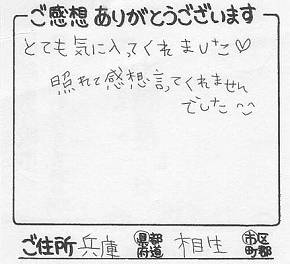 ご感想 ありがとうございます
とても気に入ってくれました♡
照れて感想言ってくれません
でした
ご住所 兵庫 都道府県 相生 市区町郡